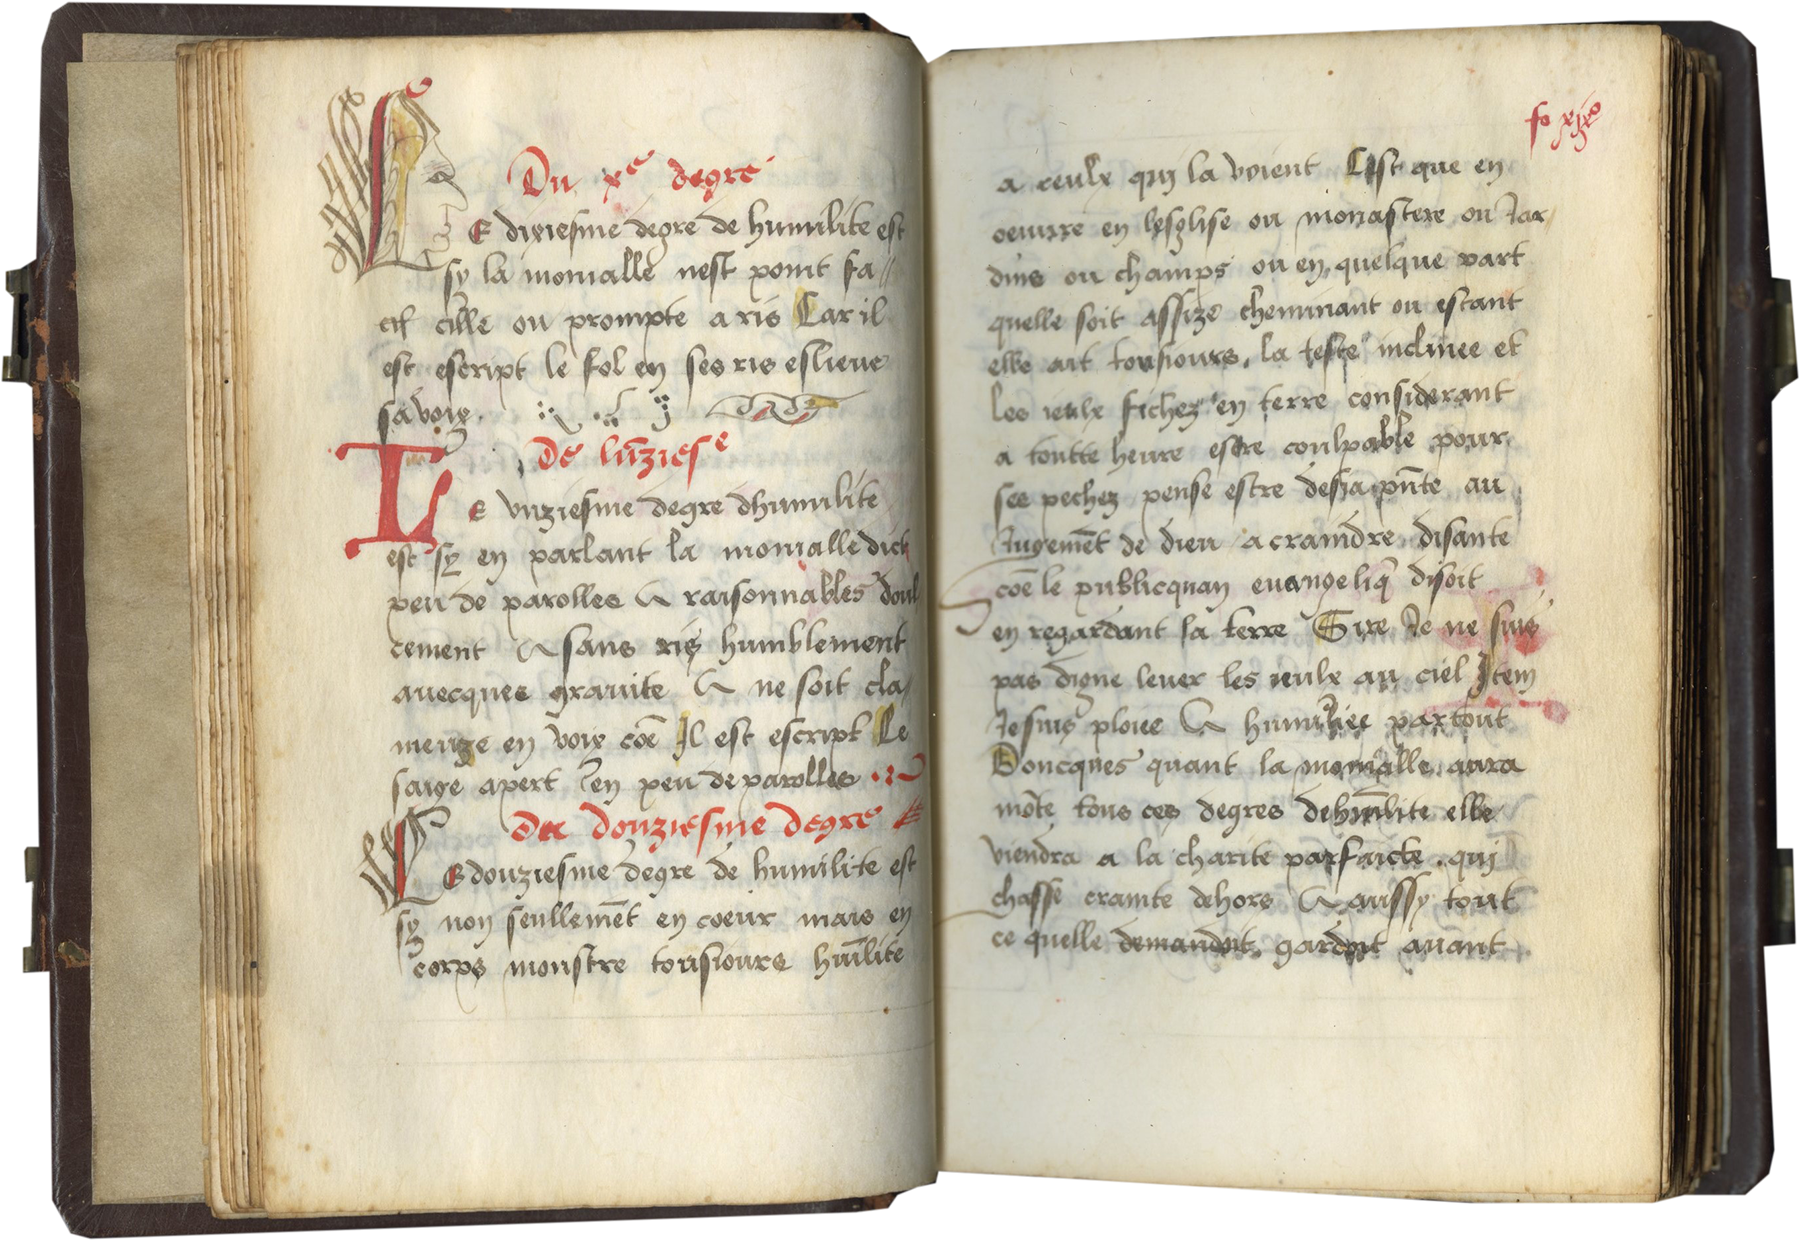 Du xe degre
LE dixiesme degre de humilite est
sy la monialle nest point fa //
cille ou prompte a ris Car il
est escript le fol en ses ris eslieue
sa voix.
De lūziese
LE vnziesme degre dhumilite
est sy en parlant la monialle dict
peu de parolles & raisonnables doul
cement & sans ris humblement
auecques grauite & ne soit cla/
meuze en voix coē Il est escript Le
saige apert en peu de parolles
Du douziesme degre
LE douziesme degre de humilite est
sy non seullemēt en coeur mais en
corps monstre tousiours hūilite
fo xixe
a ceulx qui la voient Cest que en
oeuure en lesglise ou monastere ou Jar/
dins ou champs ou en quelque part
quelle soit assize cheminant ou estant
elle ait tousiours la teste inclinee et
les ieulx fichez en terre considerant
a toutte heure estre coulpable pour
ses pechez pense estre desia pn̄te au
Jugemēt de dieu a craindre disante
coē le publicquan euangeliq̄ disoit
en regardant la terre Sire Je ne suis
pas digne leuer les ieulx au ciel Item
Je suis ploiee & humiliee partout
Doncques quant la monialle aura
mōte tous ces degres de hūilite elle
viendra a la charite parfaicte . qui
chasse crainte dehors & aussy tout
ce quelle gardoit auant